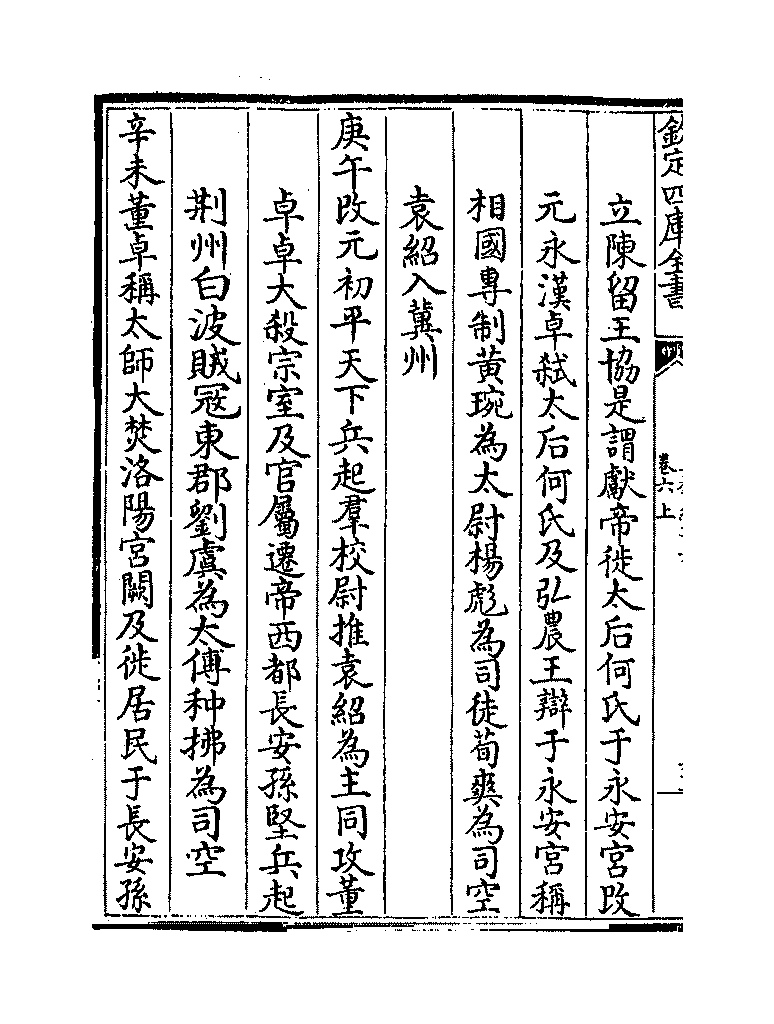 欽定四庫全書
卷六上
立陳留王協是謂獻帝徙太后何氏于永安宮改
元永漢卓弒太后何氏及弘農王辯于永安宮稱
相國專制黃琬為太尉楊彪為司徒荀爽為司空
袁紹入冀州
庚午改元初平天下兵起羣校尉推袁紹為主同攻董
卓卓大殺宗室及官屬遷帝西都長安孫堅兵起
荆州白波賊冦東郡劉虞為太傅种拂為司空
辛未董卓稱太師大焚洛陽宮闕及徙居民于長安孫